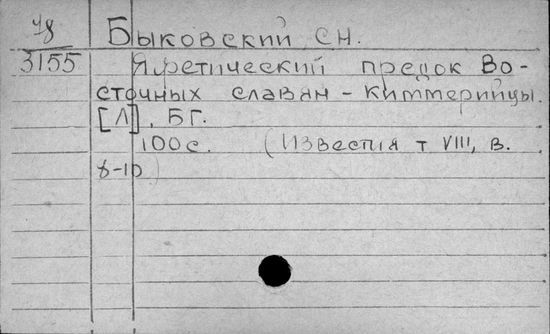 48 Быковский С.Н.
3155 Яфетический предок Во-
сточных славян - киммерийцы.
[Л], БГ.
100 с. (Известия т VIII, в.
8-10)